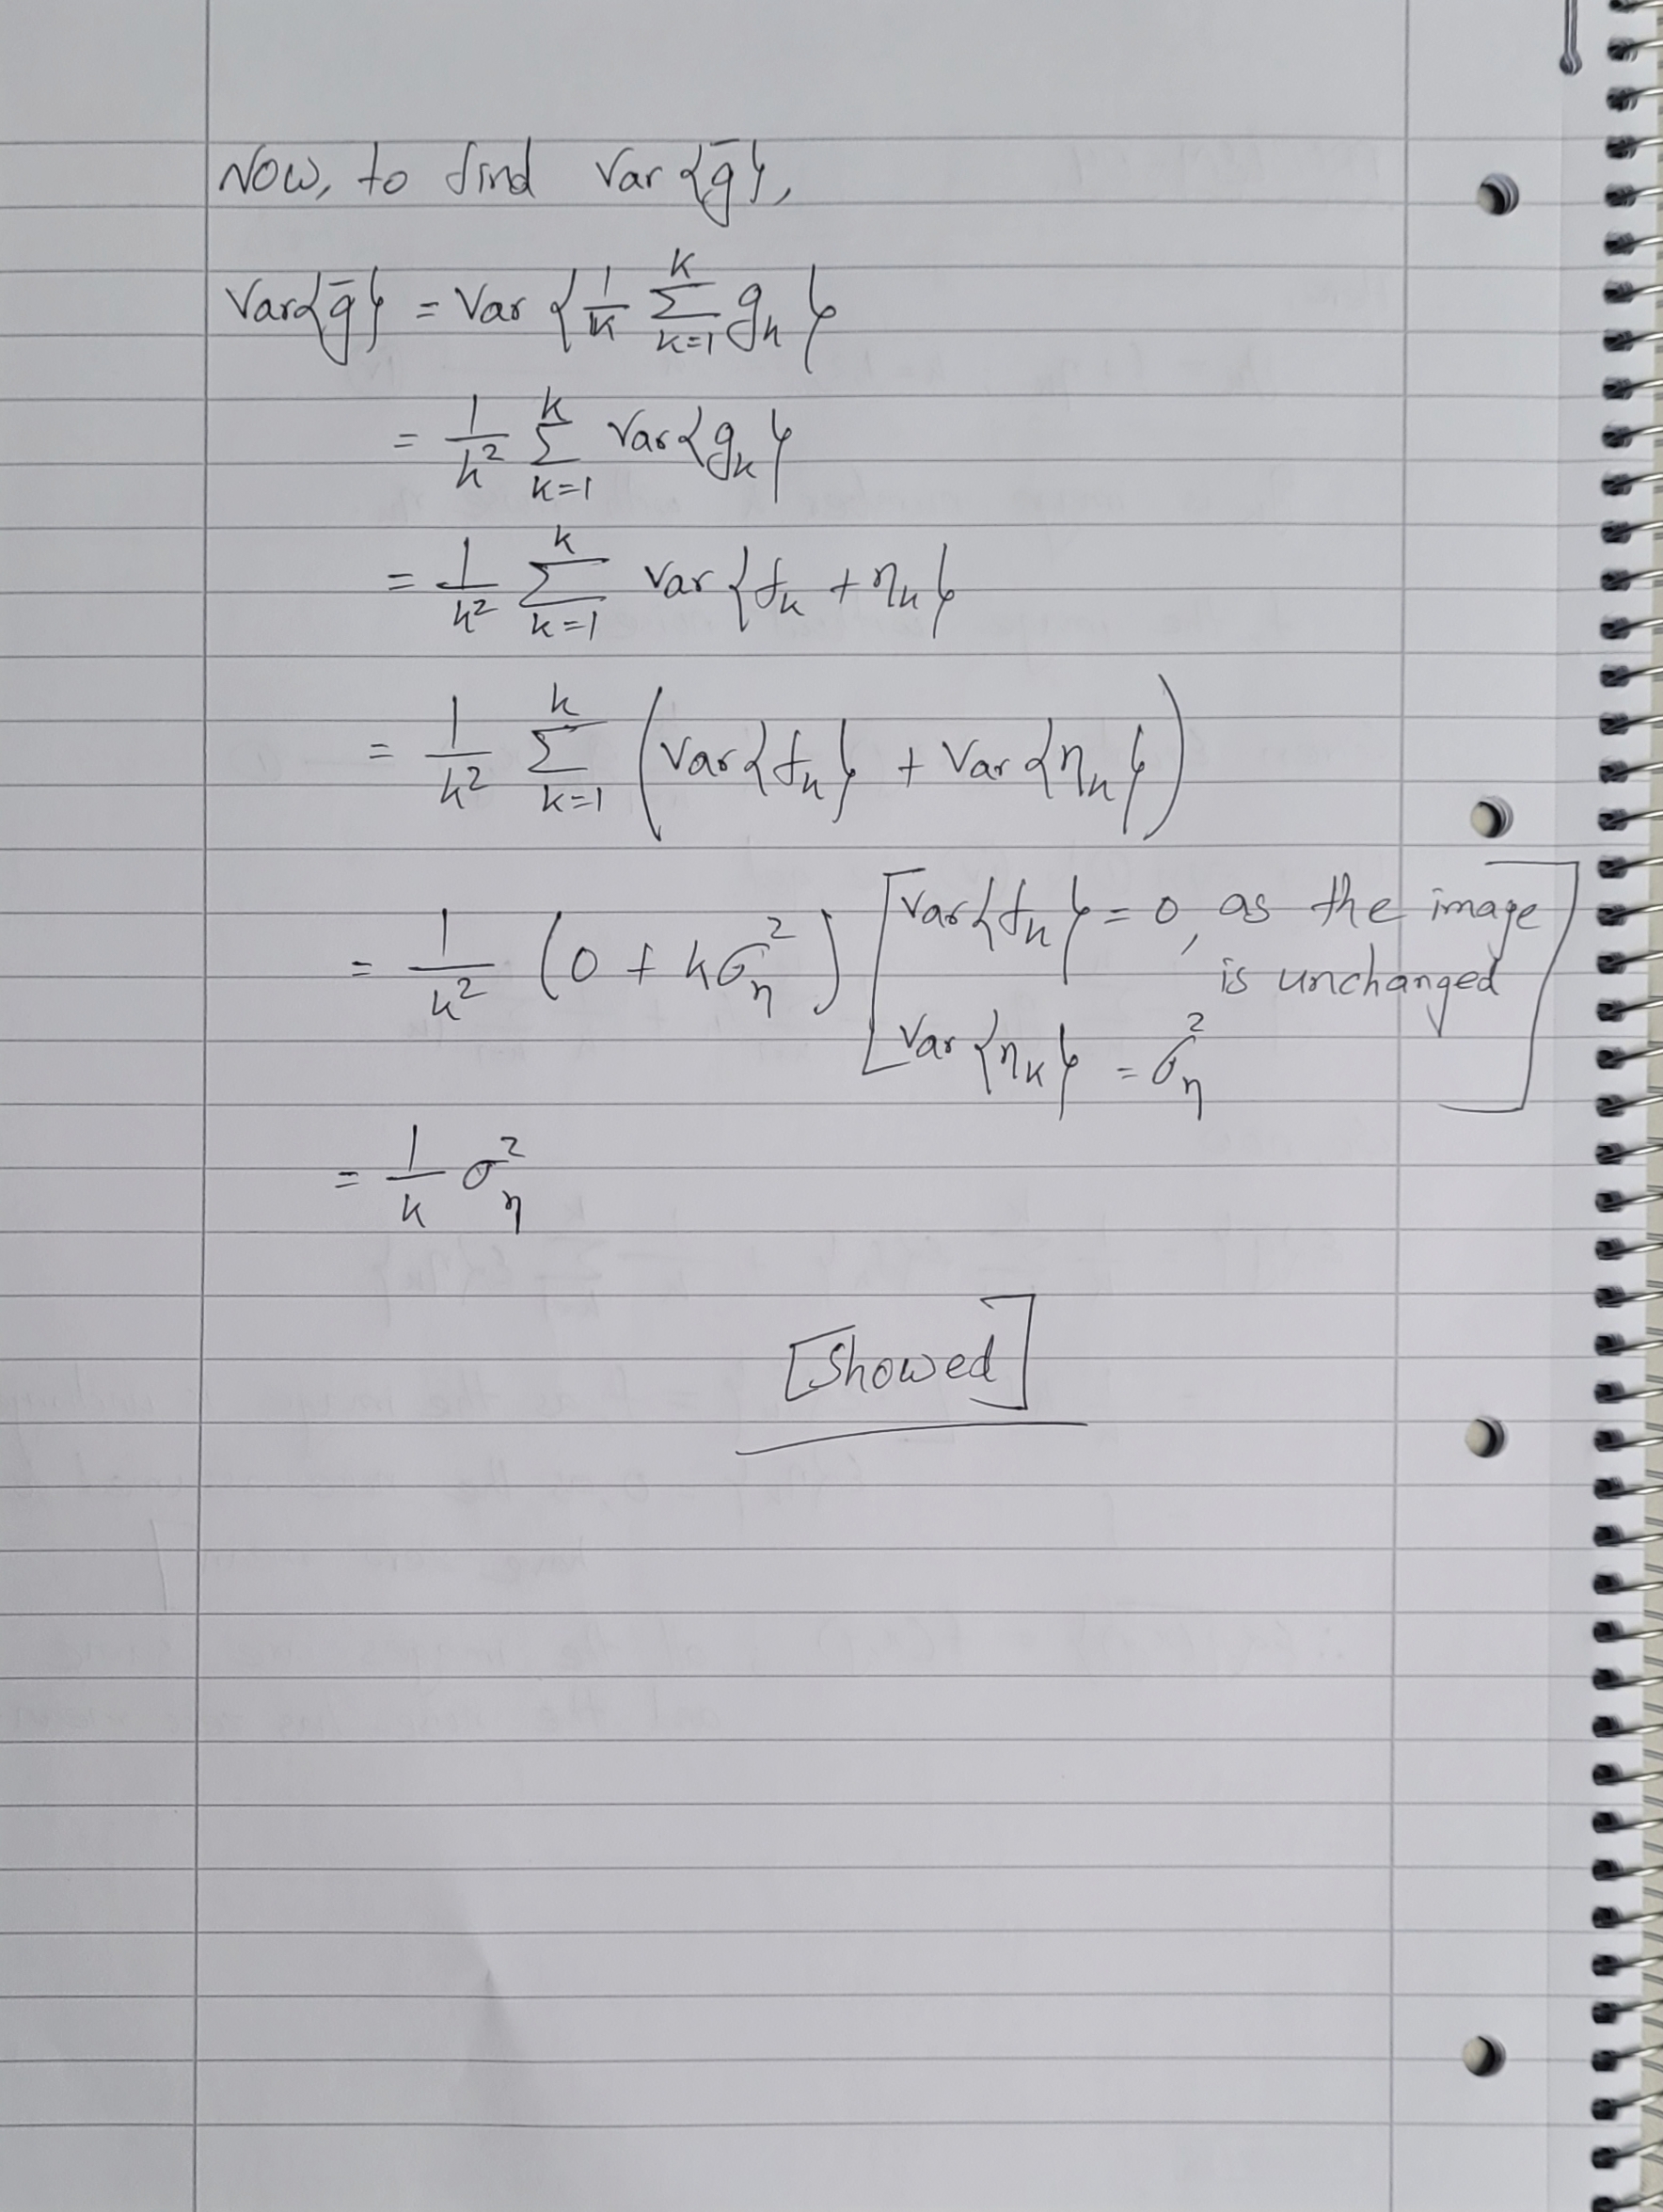 Now, to find Var{ḡ},
Var{ḡ} = Var {1/K Σ_{k=1}^{K} g_k}
= 1/k² Σ_{k=1}^{k} Var{g_k}
= 1/k² Σ_{k=1}^{k} Var{f_k + η_k}
= 1/k² Σ_{k=1}^{k} (Var{f_k} + Var{η_k})
= 1/k² (0 + kσ_η²) [Var{f_k} = 0, as the image
is unchanged
Var{η_k} = σ_η²]
= 1/k σ_η²
[Showed]